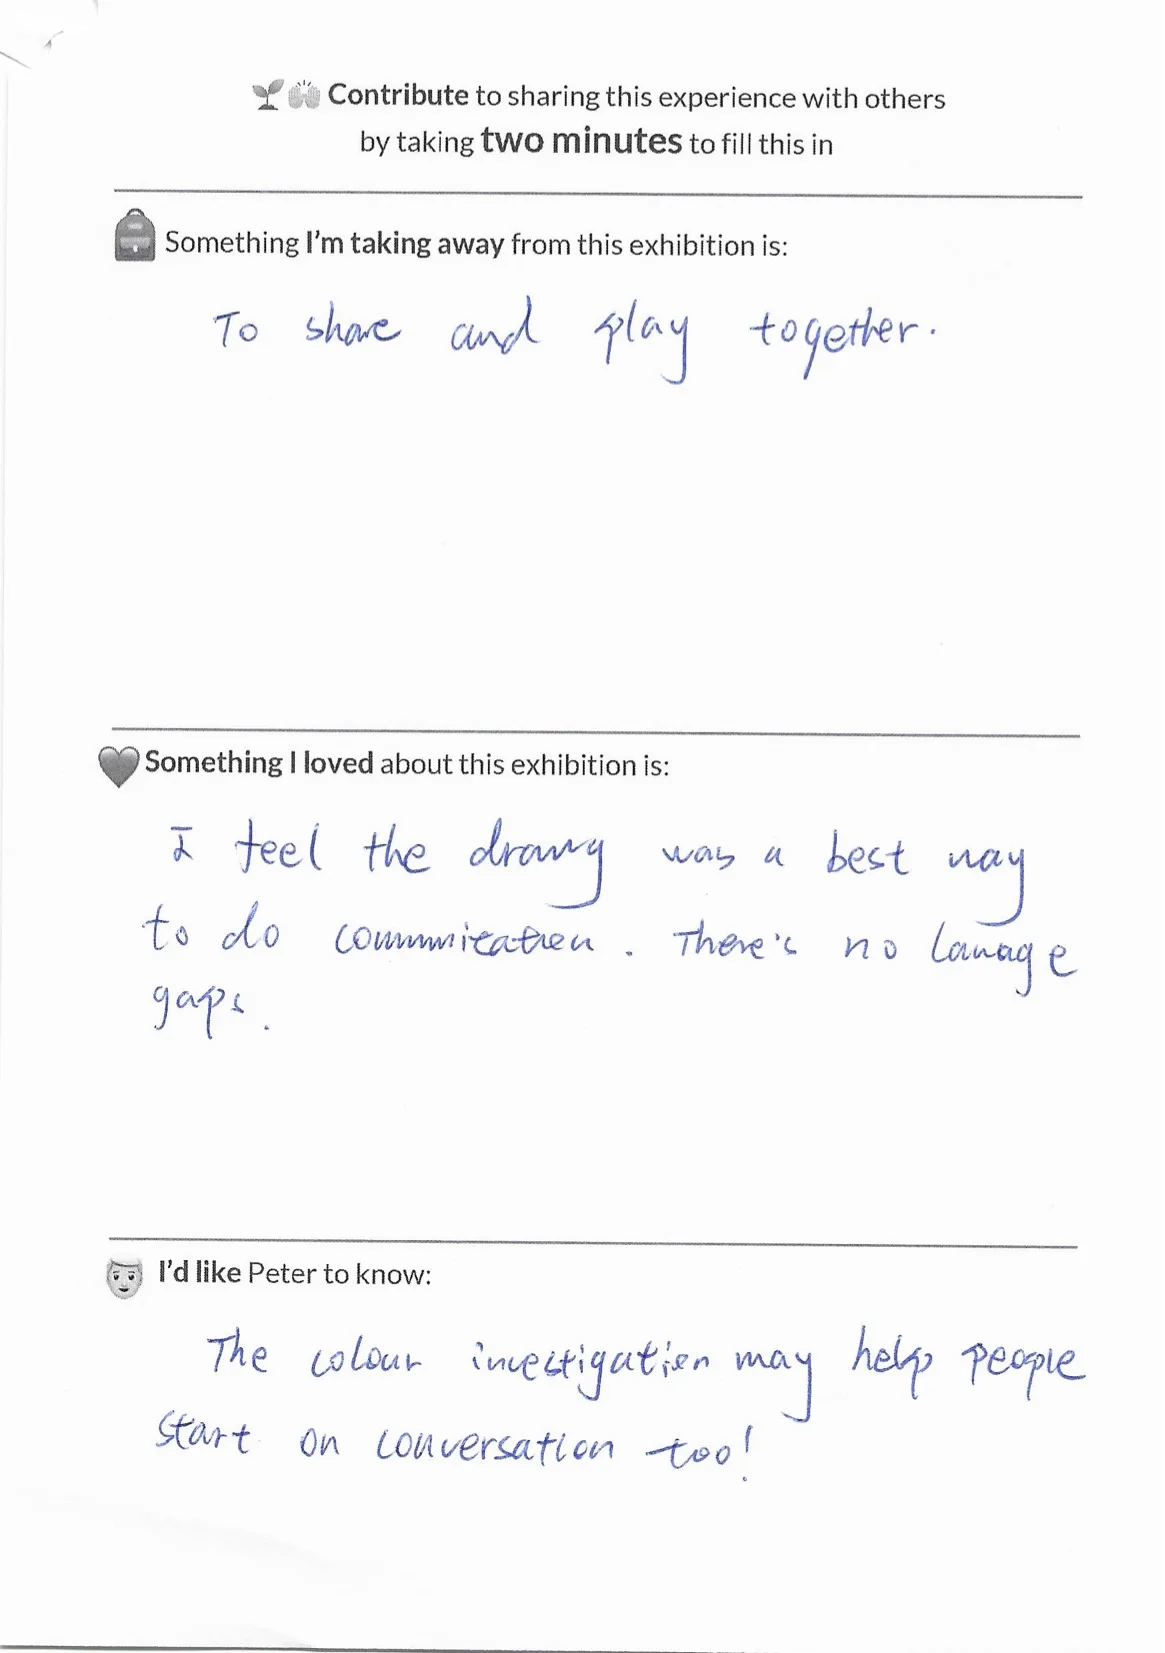 Contribute to sharing this experience with others
by taking two minutes to fill this in
Something I'm taking away from this exhibition is:
To share and play together.
Something I loved about this exhibition is:
I feel the drawing was a best way
to do commnication. There's no lanage
gaps.
I'd like Peter to know:
The colour investigation may help people
start on conversation too!